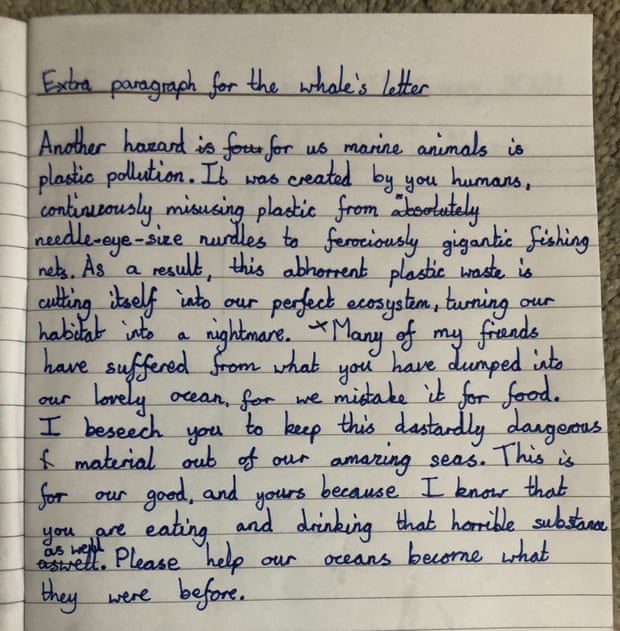 Extra paragraph for the whale's letter
Another hazard is four for us marine animals is
plastic pollution. It was created by you humans,
continuously misusing plastic from absolutely
needle-eye-size nurdles to ferociously gigantic fishing
nets. As a result, this abhorrent plastic waste is
cutting itself into our perfect ecosystem, turning our
habitat into a nightmare. Many of my friends
have suffered from what you have dumped into
our lovely ocean, for we mistake it for food.
I beseech you to keep this dastardly dangerous
material out of our amazing seas. This is
for our good, and yours because I know that
you are eating and drinking that horrible substance
as well
aswell. Please help our oceans become what
they were before.